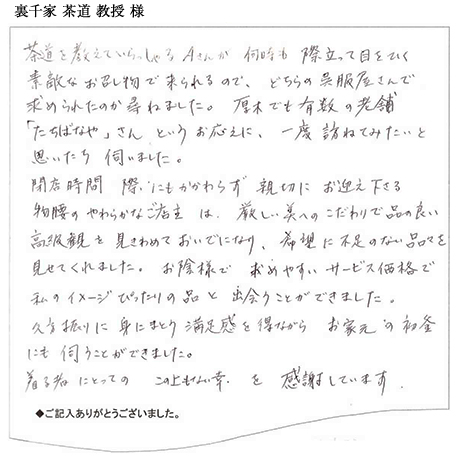 裏千家 茶道 教授 様
茶道を教えていらっしゃるAさんが 何時も 際立って目をひく
素敵なお召し物で来られるので、どちらの呉服屋さんで
求められたのか尋ねました。 厚木でも有数の老舗
「たちばなや」さん というお応えに、一度訪ねてみたいと
思いたち 伺いました。
閉店時間 際にもかかわらず 親切に お迎え下さる
物腰のやわらかなご店主は、厳しい美へのこだわりで品の良い
高級観を見きわめておいでになり、希望に不足のない品々を
見せてくれました。 お陰様で 求めやすい サービス価格で
私のイメージぴったりの品と 出会うことができました。
久方振りに 身にまとう満足感を得ながら お家元の初釜
にも 伺うことができました。
着る者にとっての この上もない幸 を 感謝しています.
◆ご記入ありがとうございました。